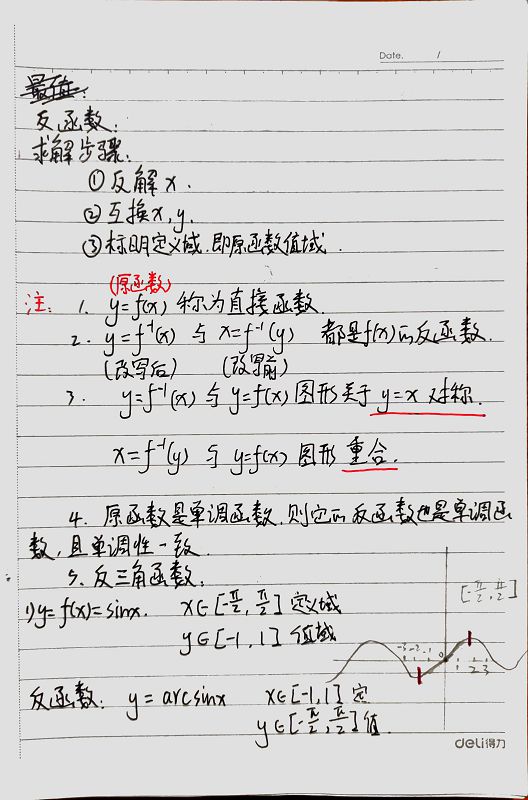 Date. /
最值:
反函数:
求解步骤:
①反解x.
②互换x,y.
③标明定义域.即原函数值域.
(原函数)
注: 1. y=f(x) 称为直接函数.
2. y=f⁻¹(x) 与 x=f⁻¹(y) 都是f(x)的反函数.
(改写后) (改写前)
3. y=f⁻¹(x) 与 y=f(x) 图形关于 y=x 对称.
x=f⁻¹(y) 与 y=f(x) 图形 重合.
4. 原函数是单调函数.则它的反函数也是单调函
数,且单调性一致.
5. 反三角函数:
1) y=f(x)=sinx. x∈[-π/2, π/2] 定义域
[-π/2, π/2]
y∈[-1,1] 值域
-3 -2 -1 0 1 2 3
反函数: y=arcsinx x∈[-1,1] 定
y∈[-π/2, π/2] 值.
deli得力